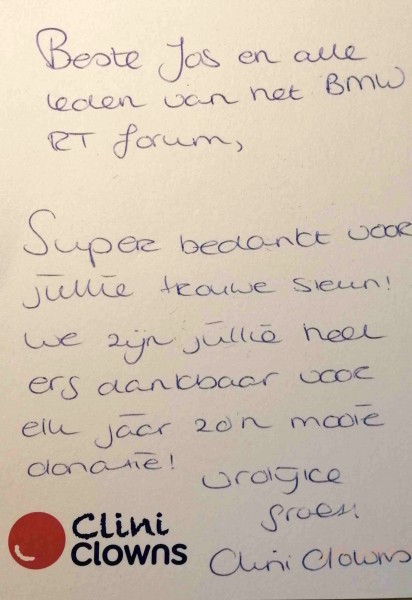 Beste Jos en alle
leden van het BMW
RT forum,
Super bedankt voor
jullie trouwe steun!
We zijn jullie heel
erg dankbaar voor
elk jaar zo'n mooie
donatie!
Vrolijke
groet!
Clini Clowns
Clini
Clowns